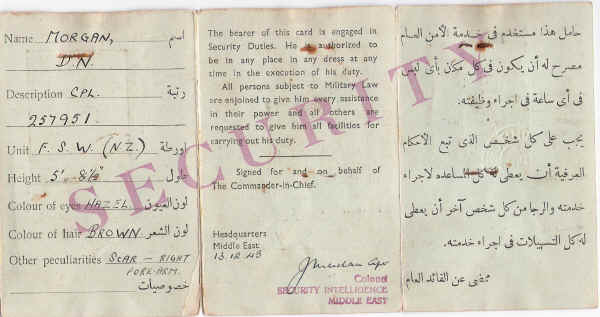 Name MORGAN, اسم
D.N
Description CPL. رتبة
257951
Unit F. S. W. (N.Z.) اورطة
Height 5' 8½" طول
Colour of eyes HAZEL لون العيون
Colour of hair BROWN لون الشعر
Other peculiarities SCAR – RIGHT
FORE-ARM.
خصوصيات
The bearer of this card is engaged in
Security Duties. He is authorized to
be in any place in any dress at any
time in the execution of his duty.
All persons subject to Military Law
are enjoined to give him every assistance
in their power and all others are
requested to give him all facilities for
carrying out his duty.
Signed for and on behalf of
The Commander-in-Chief.
Headquarters
Middle East
13.12.43
Colonel
SECURITY INTELLIGENCE
MIDDLE EAST
حامل هذا مستخدم في خدمة الأمن العام
مصرح له أن يكون فى كل مكان بأى لبس
فى أى ساعة فى اجراء وظيفته.
يجب على كل شخص الذى تبع الأحكام
العرفية أن يعطى له كل المساعده لاجراء
خدمته والرجا من كل شخص آخر أن يعطى
له كل التسهيلات فى اجراء خدمته.
ممضى عن القائد العام
SECURITY